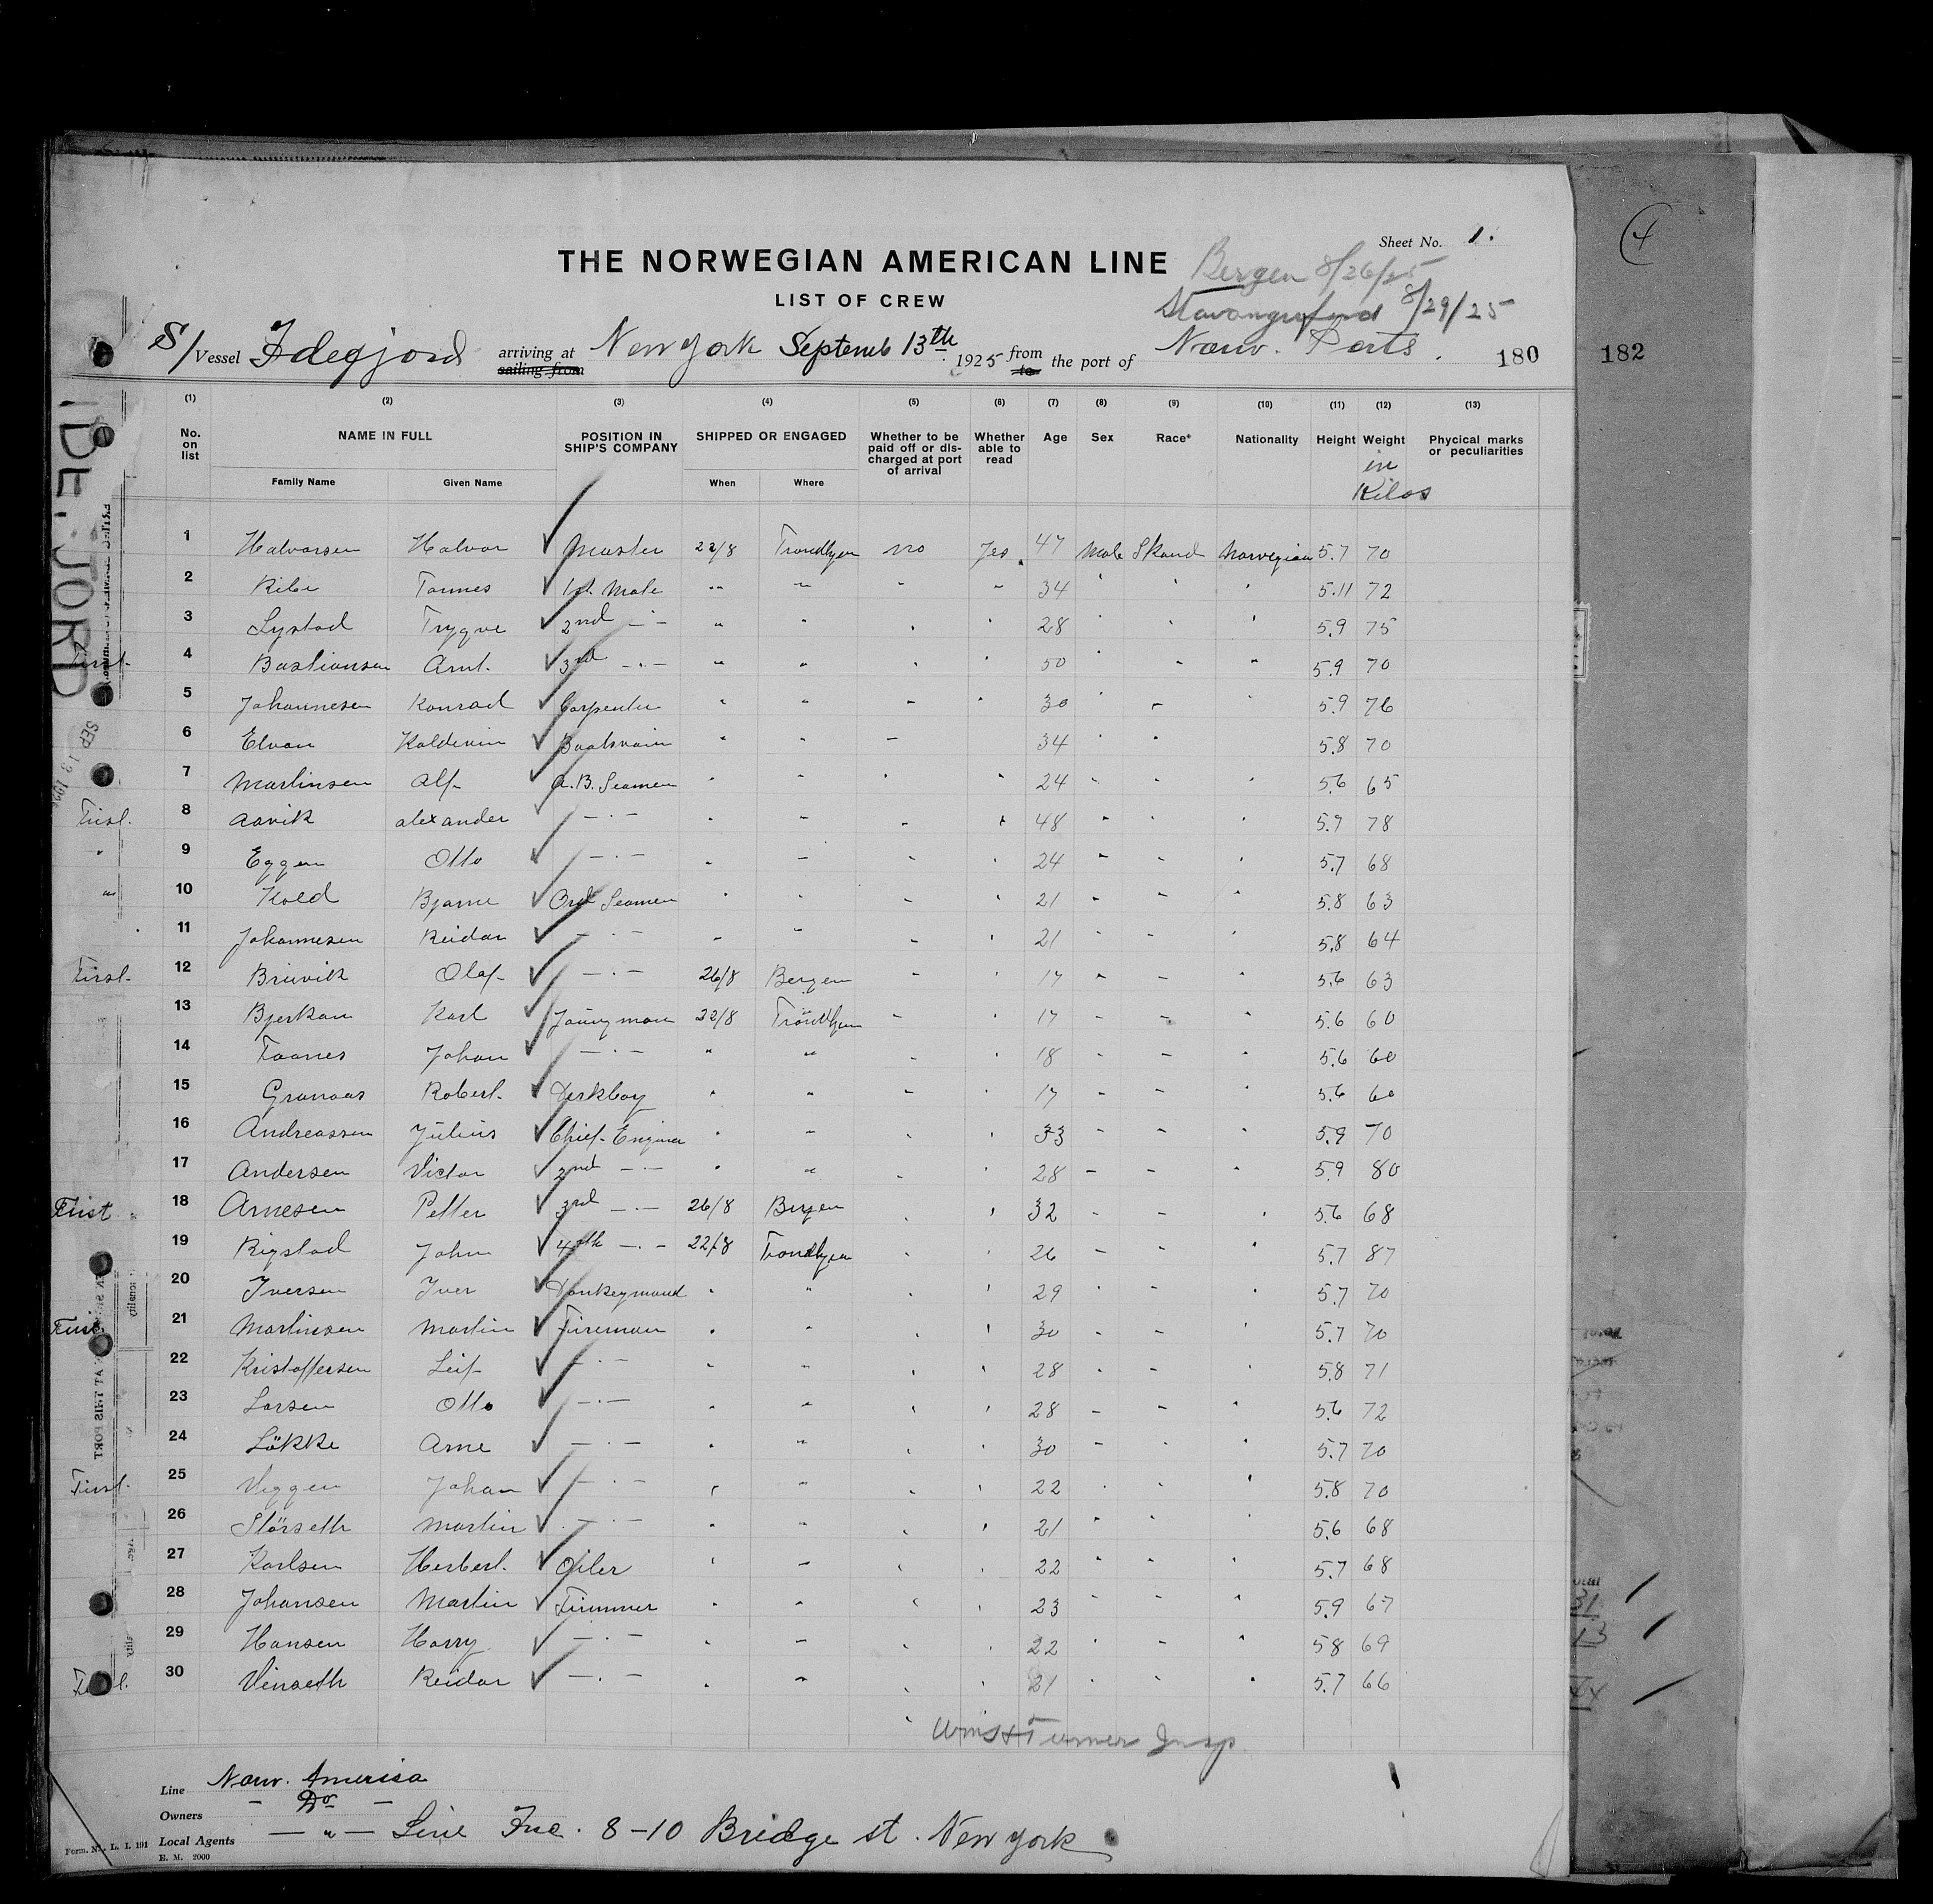 Sheet No. 1.
THE NORWEGIAN AMERICAN LINE
Bergen 8/26/25
LIST OF CREW
Stavangerfjord 8/29/25
S/Vessel Idefjord arriving at sailing from New York Septemb 13th 1925 from to the port of Norw. Ports. 180
182
4
IDEFJORD
(1) (2) (3) (4) (5) (6) (7) (8) (9) (10) (11) (12) (13)
No. on list NAME IN FULL POSITION IN SHIP'S COMPANY SHIPPED OR ENGAGED Whether to be paid off or discharged at port of arrival Whether able to read Age Sex Race* Nationality Height Weight in Kilos Phycical marks or peculiarities
Family Name Given Name When Where
1 Halvorsen Halvor Master 22/8 Trondhjem no Yes. 47 Male Skand Norwegian 5.7 70
2 Ribe Tonnes 1st. Mate " " " " 34 " " " 5.11 72
3 Lystad Trygve 2nd -"- " " " " 28 " " " 5.9 75
First. 4 Bastiansen Arnt. 3rd -"- " " " " 50 " " " 5.9 70
5 Johannesen Konrad Carpenter " " " " 30 " " " 5.9 76
6 Elvan Kaldevin Boatsvain " " " 34 " " 5.8 70
7 Martinsen Alf A.B. Seamen " " " " 24 " " " 5.6 65
First. 8 Aavik Alexander -"- " " " " 48 " " " 5.7 78
" 9 Eggen Otto -"- " " " " 24 " " " 5.7 68
" 10 Kold Bjarne Ord Seamen " " " " 21 " " " 5.8 63
11 Johannesen Reidar -"- " " " " 21 " " " 5.8 64
First. 12 Bruvik Olaf -"- 26/8 Bergen " " 17 " " " 5.6 63
13 Bjerkan Karl Youngman 22/8 Trondhjem " " 17 " " " 5.6 60
14 Taanes Johan -"- " " " " 18 " " " 5.6 60
15 Granaas Robert. Derkboy " " " " 17 " " " 5.6 60
16 Andreassen Julius Chief-Enginer " " " " 33 " " " 5.9 70
17 Andersen Victor 2nd -"- " " " " 28 " " " 5.9 80
First 18 Arnesen Petter 3rd -"- 26/8 Bergen " " 32 " " " 5.6 68
19 Rigstad John 4th -"- 22/8 Trondhjem " " 26 " " " 5.7 87
20 Iversen Iver Donkeymand " " " " 29 " " " 5.7 70
First 21 Martinsen Martin Fireman " " " " 30 " " " 5.7 70
22 Kristoffersen Leif -"- " " " " 28 " " " 5.8 71
23 Larsen Otto -"- " " " " 28 " " " 5.6 72
24 Løkke Arne -"- " " " " 30 " " " 5.7 70
First. 25 Viggen Johan -"- " " " " 22 " " " 5.8 70
26 Störseth Martin -"- " " " " 21 " " " 5.6 68
27 Karlsen Herbert. Oiler " " " " 22 " " " 5.7 68
28 Johansen Martin Trimmer " " " " 23 " " " 5.9 67
29 Hansen Harry -"- " " " " 22 " " " 5 8 69
First. 30 Vinseth Reidar -"- " " " " 21 " " " 5.7 66
Turner Insp
Line Norw. America
Owners - Do - 
Local Agents -"- Line Inc. 8-10 Bridge st. New York
E. M. 2000